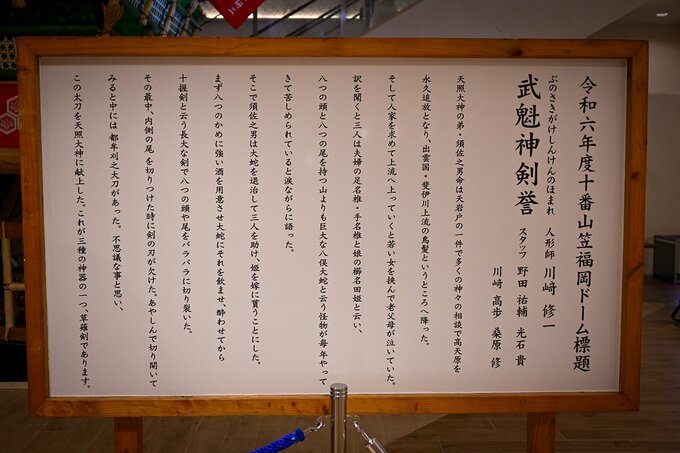 令和六年度十番山笠福岡ドーム標題
ぶのさきがけしんけんのほまれ
武魁神剣誉
人形師 川﨑 修一
スタッフ 野田 祐輔 光石 貴
川﨑 高歩 桑原 修
天照大神の弟・須佐之男命は天岩戸の一件で多くの神々の相談で高天原を
永久追放となり、出雲国・斐伊川上流の鳥髪というところへ降った。
そして人家を求めて上流へ上っていくと若い女を挟んで老父母が泣いていた。
訳を聞くと三人は夫婦の足名椎・手名椎と娘の櫛名田姫と云い、
八つの頭と八つの尾を持つ山よりも巨大な八俣大蛇と云う怪物が毎年やって
きて苦しめられていると涙ながらに語った。
そこで須佐之男は大蛇を退治して三人を助け、姫を嫁に貰うことにした。
まず八つのかめに強い酒を用意させ大蛇にそれを飲ませ、酔わせてから
十握剣と云う長大な剣で八つの頭や尾をバラバラに切り裂いた。
その最中、内側の尾を切りつけた時に剣の刃が欠けた。あやしんで切り開いて
みると中には 都牟刈之大刀があった。不思議な事と思い、
この太刀を天照大神に献上した。これが三種の神器の一つ、草薙剣であります。